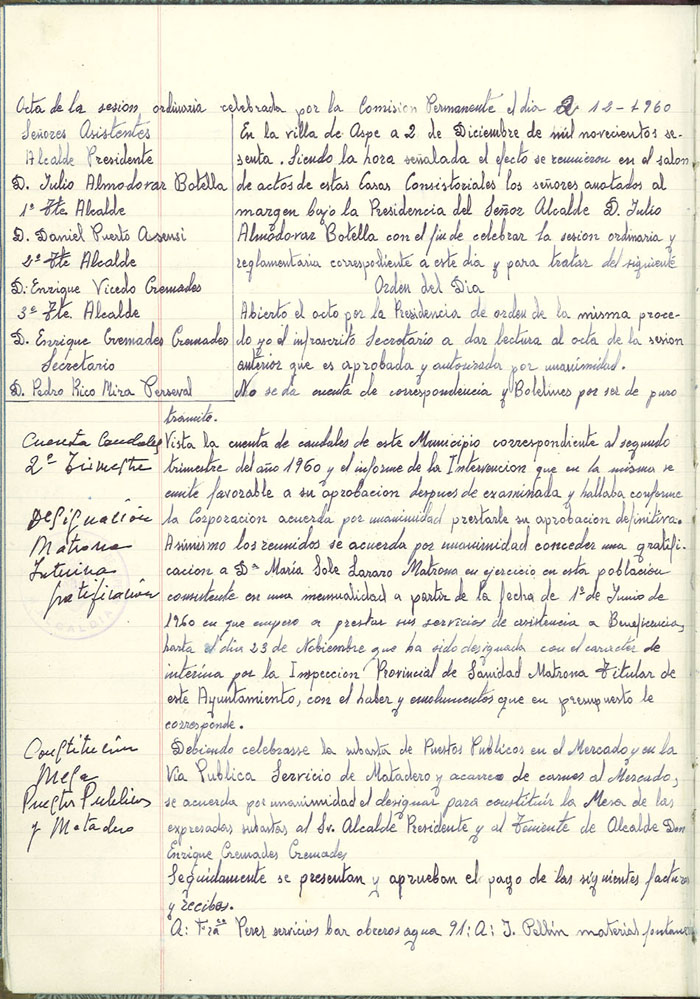 Acta de la sesion ordinaria celebrada por la Comision Permanente el dia 2 12-1960
Señores Asistentes
Alcalde Presidente
D. Julio Almodovar Botella
1º Tte Alcalde
D. Daniel Puerto Asensi
2º Tte Alcalde
D. Enrique Vicedo Cremades
3º Tte. Alcalde
D. Enrique Cremades Cremades
Secretario
D. Pedro Rico Mira Perseval
En la villa de Aspe a 2 de Diciembre de mil novecientos se-
senta. Siendo la hora señalada el efecto se reunieron en el salon
de actos de estas Casas Consistoriales los señores anotados al
margen bajo la Presidencia del Señor Alcalde D. Julio
Almodovar Botella con el fin de celebrar la sesion ordinaria y
reglamentaria correspondiente a este dia y para tratar del siguiente
Orden del Dia
Abierto el acto por la Presidencia de orden de la misma proce-
do yo el infrascrito Secretario a dar lectura al acta de la sesion
anterior que es aprobada y autorizada por unanimidad.
No se da cuenta de correspondencia y Boletines por ser de puro
trámite.
Cuenta Caudales
2º Trimestre
Vista la cuenta de caudales de este Municipio correspondiente al segundo
trimestre del año 1960 y el informe de la Intervencion que en la misma se
emite favorable a su aprobacion despues de examinada y hallaba conforme
la Corporacion acuerda por unanimidad prestarle su aprobacion definitiva.
Designación
Matrona
Interina
gratificación
Asimismo los reunidos se acuerda por unanimidad conceder una gratifi-
cacion a Dª María Sole Lazaro Matrona en ejercicio en esta poblacion
consistente en una mensualidad a partir de la fecha de 1º de Junio de
1960 en que empezo a prestar sus servicios de asistencia a Beneficencia,
hasta el dia 23 de Nobiembre que ha sido designada con el caracter de
interina por la Inspeccion Provincial de Sanidad Matrona Titular de
este Ayuntamiento, con el haber y emolumentos que en presupuesto le
corresponde.
Constitución
Mesa
Puestos Publicos
y Matadero
Debiendo celebrasse la subasta de Puestos Publicos en el Mercado y en la
Via Publica Servicio de Matadero y acarreo de carnes al Mercado,
se acuerda por unanimidad el designar para constituir la Mesa de las
expresadas subastas al Sr. Alcalde Presidente y al Teniente de Alcalde Don
Enrique Cremades Cremades
Seguidamente se presentan y aprueban el pago de las siguientes facturas
y recibos.
A: Fraco Perez servicios bar obreros agua 91; A: J. Pellín material fontan